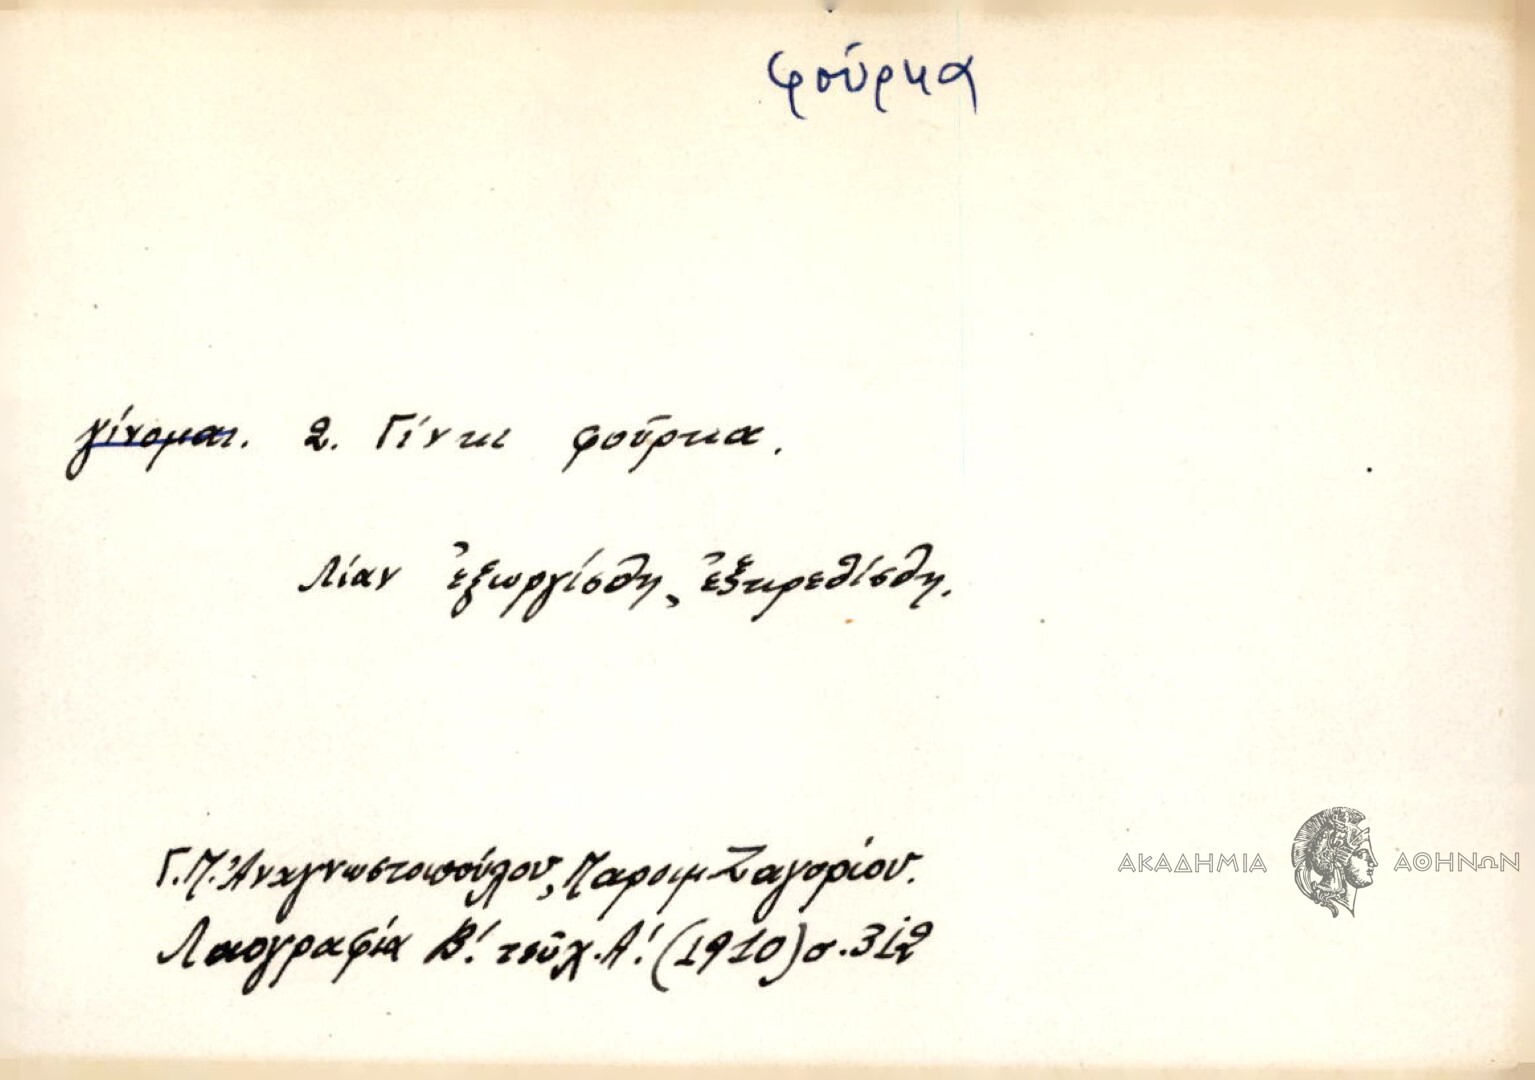 φούρκα
γίνομαι. 2. Γίνκι φοῦρκα.
Λίαν ἐξωργίσθη, ἐξηρεθίσθη.
Γ.Π.Ἀναγνωστοπούλου, Παροιμ Ζαγορίου.
Λαογραφία Β΄. τεῦχ. Α΄. (1910) σ. 312
ΑΚΑΔΗΜΙΑ ΑΘΗΝΩΝ